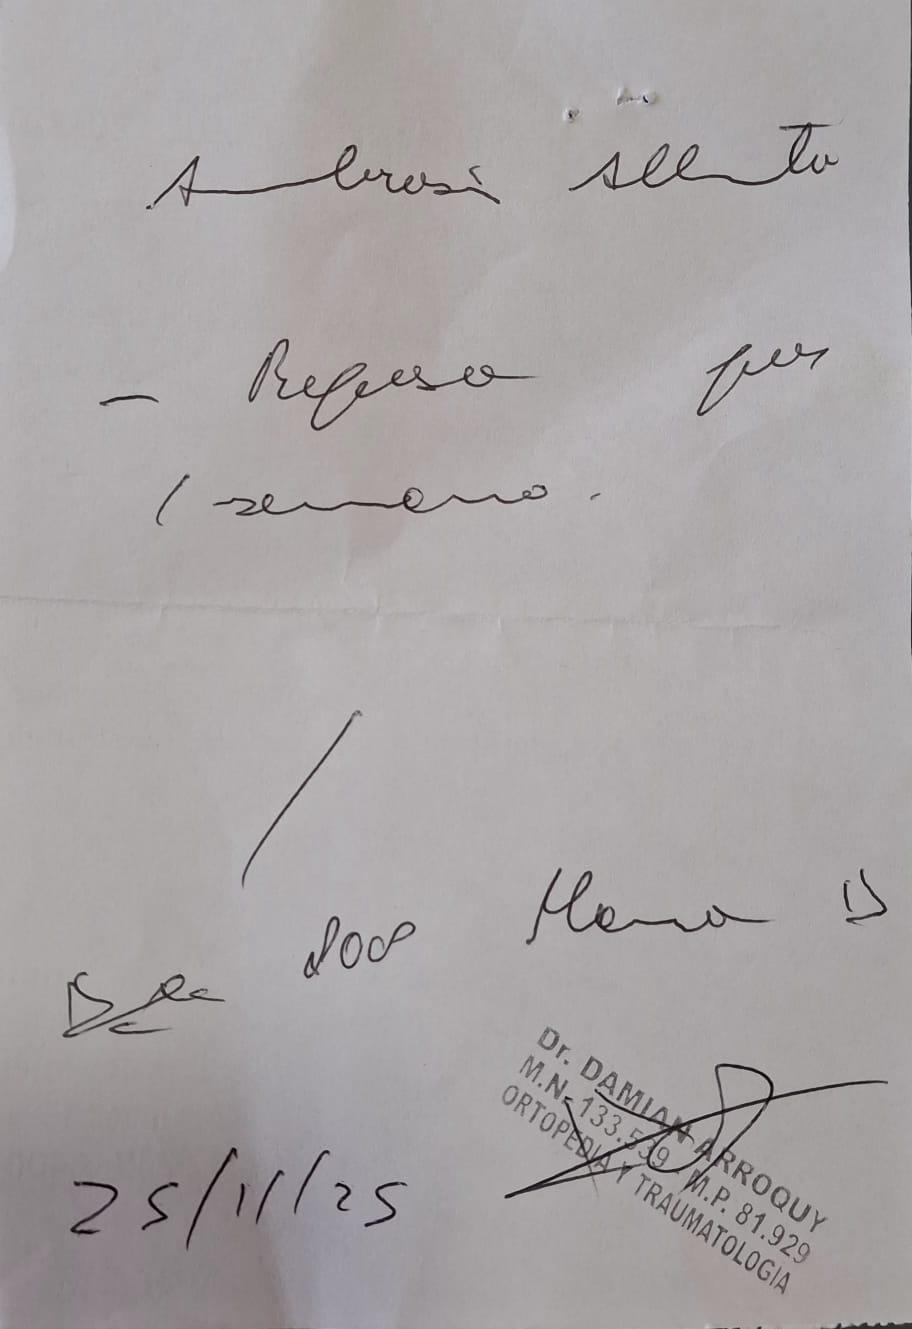 Ambrosi Alberto
- Reposo por
1 semana.
Dolor Mano D
25/11/25
Dr. DAMIAN ARROQUY
M.N. 133.539 M.P. 81.929
ORTOPEDIA Y TRAUMATOLOGIA